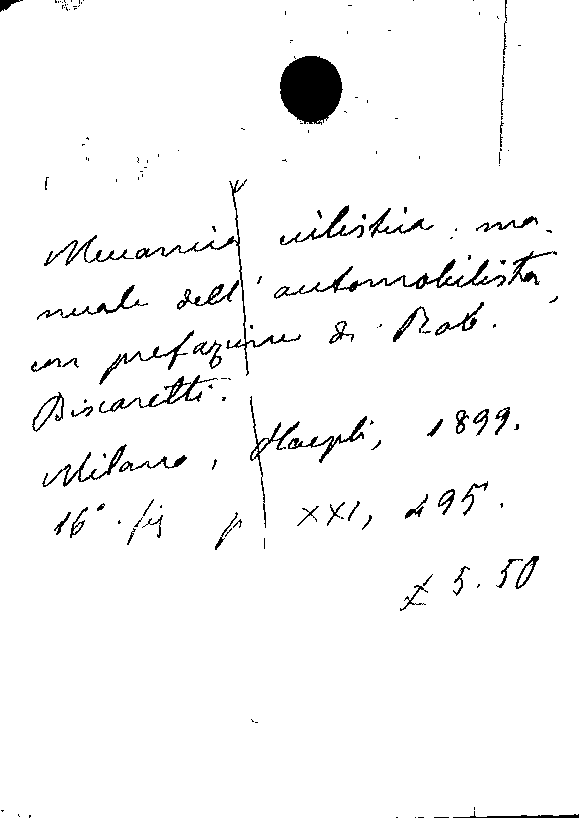 Meccanica ciclistica. ma-
nuale dell'automobilista,
con prefazione di Rob.
Biscaretti.
Milano, Hoepli, 1899.
16° fig p XXI, 495.
£ 5.50